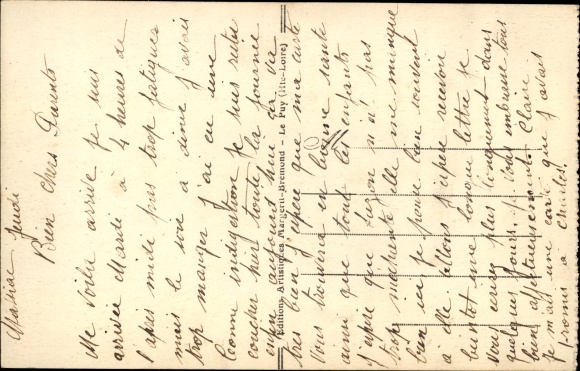 Massiac Jeudi
Bien chers Parents
Me voila arrivé je suis
arrivée Mardi à 4 heures de
l'apres midi pas trop fatiguée
mais le soir à diner j'avais
trop manger j'ai eu une
bonne indigestion je suis restée
coucher hier toute la journée
enfin aujourd'hui ça va
tres bien j'espere que ma carte
vous trouvera en bonne santé
ainsi que tout les enfants
j'espere que Suzon n'n'a pas
trop méchante elle me manque
bien ici je pense bien souvent
à elle allons j'espere recevoir
bientot une longue lettre je
vous ecrirai plus longuement dans
quelques jours. Je vous embrasse tous
bien affectueusement Claire
je mais une carte que j'avais
promis à Charles.
Editions Artistiques Margerit-Brémond - Le Puy (Hte-Loire)